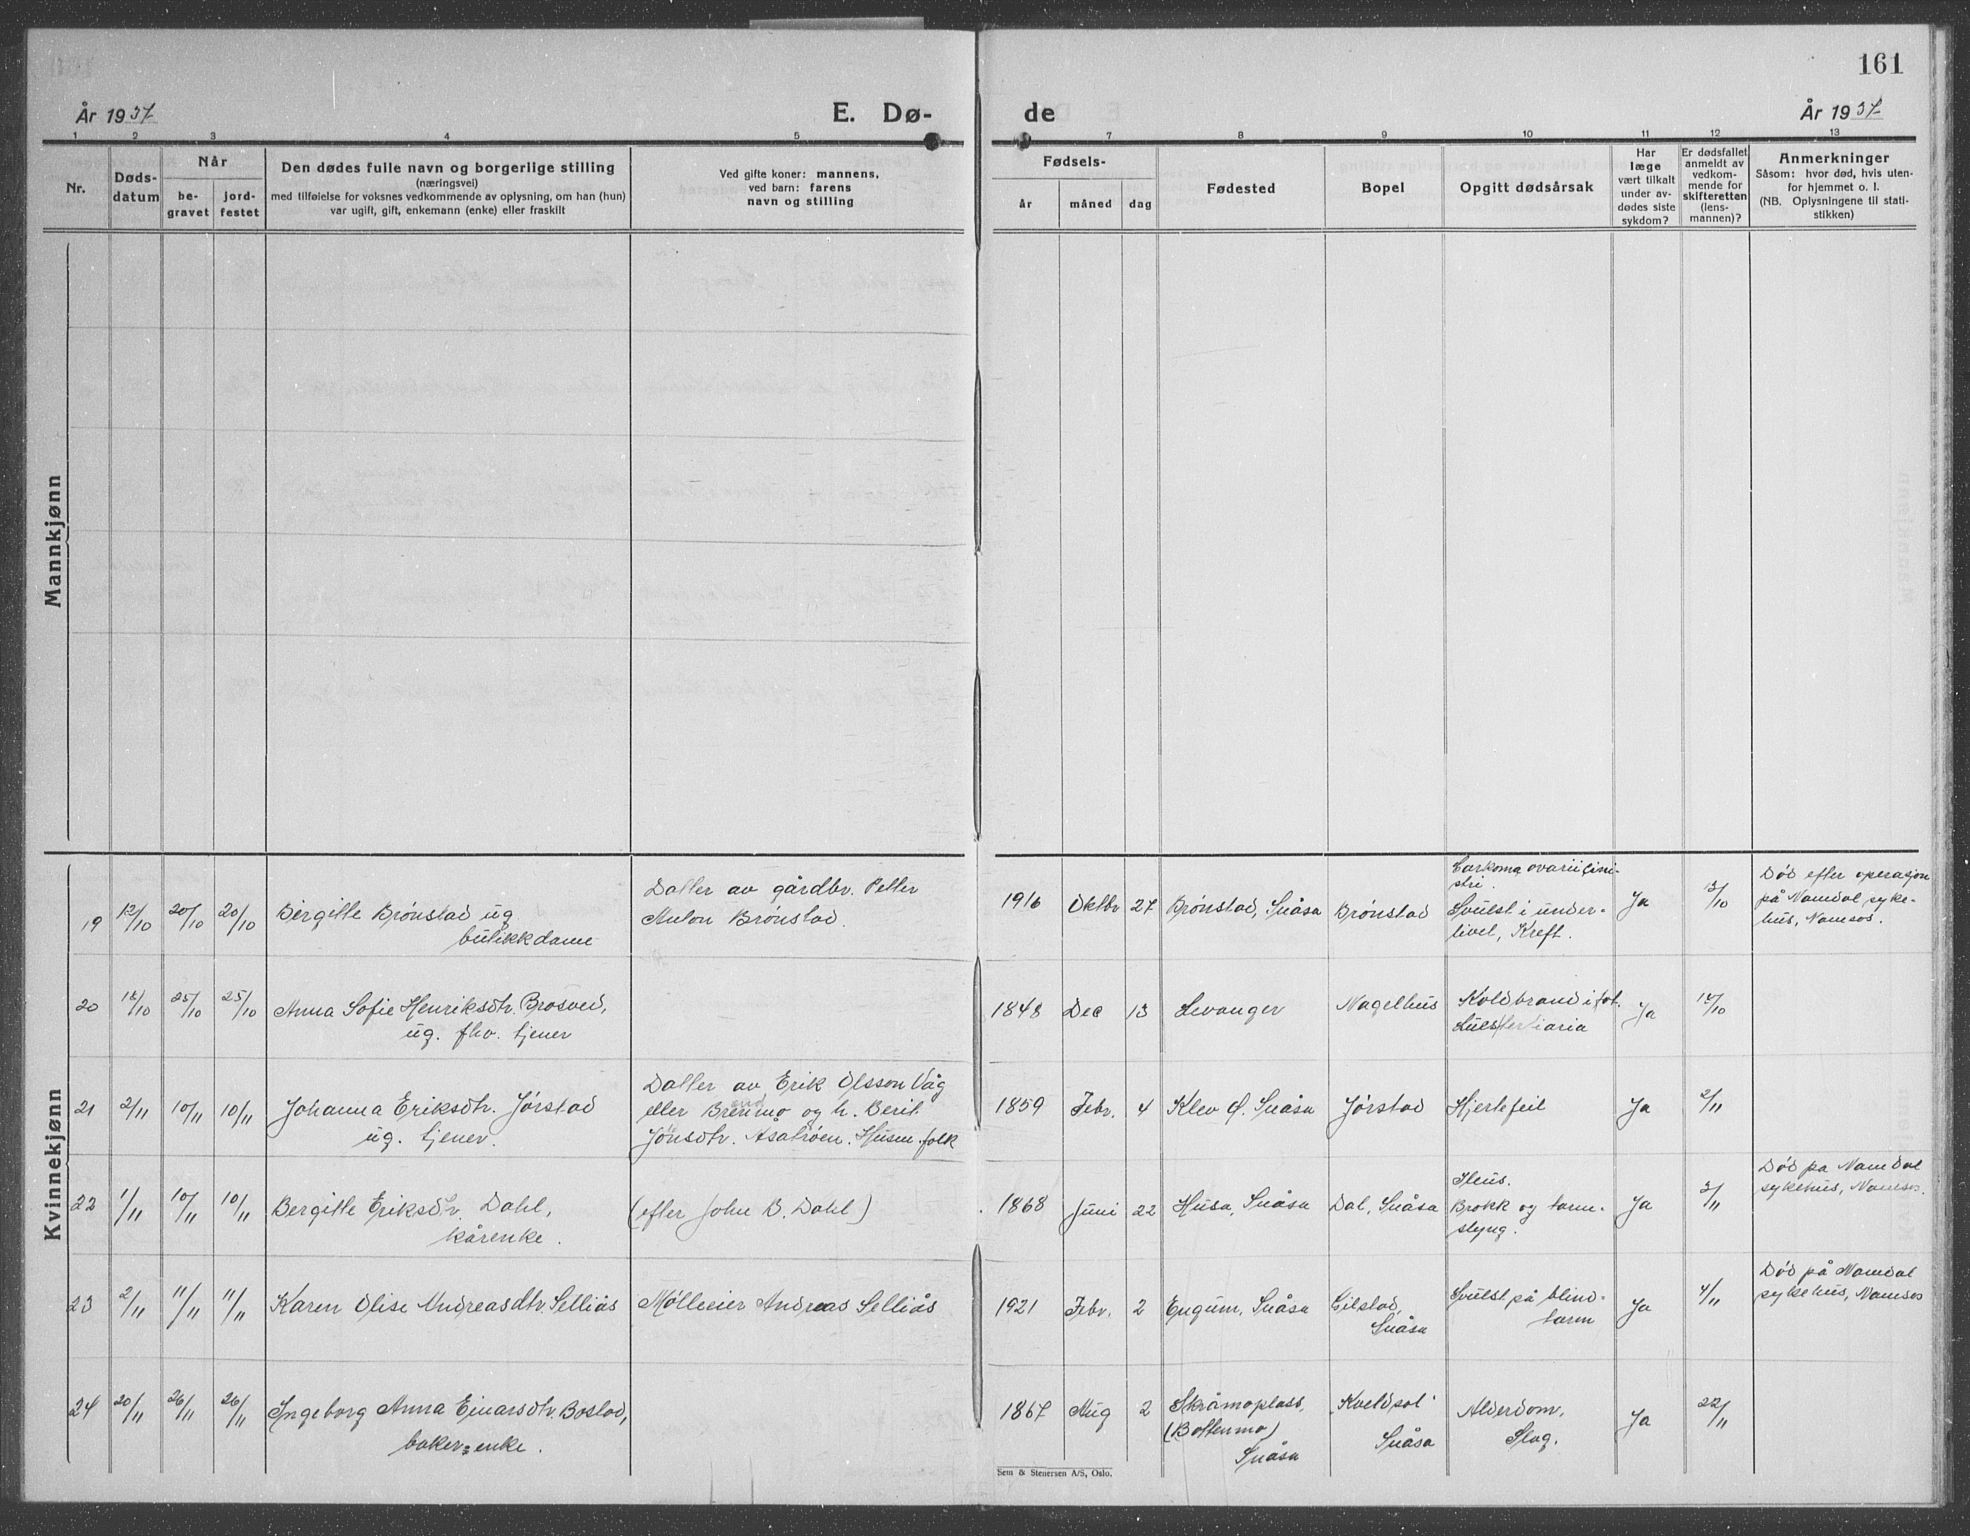 161
År 1937
E. Dø-
de
År 1937
1 2 3 4 5 7 8 9 10 11 12 13
Nr.
Døds-
datum
Når
be-
gravet
jord-
festet
Den dødes fulle navn og borgerlige stilling
(næringsvei)
med tilføielse for voksnes vedkommende av oplysning, om han (hun)
var ugift, gift, enkemann (enke) eller fraskilt
Ved gifte koner: mannens,
ved barn: farens
navn og stilling
Fødsels-
år måned dag
Fødested
Bopel
Opgitt dødsårsak
Har
læge
vært tilkalt
under av-
dødes siste
sykdom?
Er dødsfallet
anmeldt av
vedkom-
mende for
skifteretten
(lens-
mannen)?
Anmerkninger
Såsom: hvor død, hvis uten-
for hjemmet o. l.
(NB. Oplysningene til stati-
stikken)
Mannkjønn
Kvinnekjønn
19 12/10 20/10 20/10 Birgitte Brønstad ug
butikkdame
Datter av gårdbr. Petter
Anton Brønstad.
1916 Oktbr 27 Brønstad, Snåsa Brønstad
Sarkoma ovarii sini-
stri.
Svulst i under-
livet, Kreft.
Ja 13/10
Død efter operasjon
på Namdal syke-
hus, Namsos.
20 18/10 25/10 25/10 Anna Sofie Henriksdtr. Brosved,
ug. fhv. tjener
1848 Dec 13 Levanger Nagelhus
Koldbrand i fot.
Lues tertiaria
Ja /10
21 2/11 10/11 10/11 Johanna Eriksdtr. Jørstad
ug. tjener.
Datter av Erik Olsson Våg
eller Bremmo og h. Berit
Jonsdtr. Åsatrøen. Husm.folk
1859 Febr. 4 Klev Snåsa Jørstad Hjertefeil Ja 2/11
22 1/11 10/11 10/11 Bergitte Eriksdtr. Dahl,
kårenke.
(efter John B. Dahl)
1868 Juni 22 Husa, Snåsa Dal, Snåsa
Ileus.
Brokk og tarm-
slyng.
Ja 3/11
Død på Namdal
sykehus, Namsos.
23 2/11 11/11 11/11 Karen Olise Andreasdtr. Selliås Møllreier Andreas Selliås
1921 Febr. 2 Engum, Snåsa Gilstad,
Snåsa
Svulst på blind-
tarm
Ja 4/11
Død på Namdal
sykehus, Namsos
24 20/11 26/11 26/11 Ingeborg Anna Einarsdtr. Bostad,
baker-enke.
1867 Aug 2 Skråmoplass,
(Bottenmo)
Snåsa
"Kveldsol"
Snåsa
Alderdom,
Slag.
Ja 22/11
Sem & Stenersen A/S, Oslo.